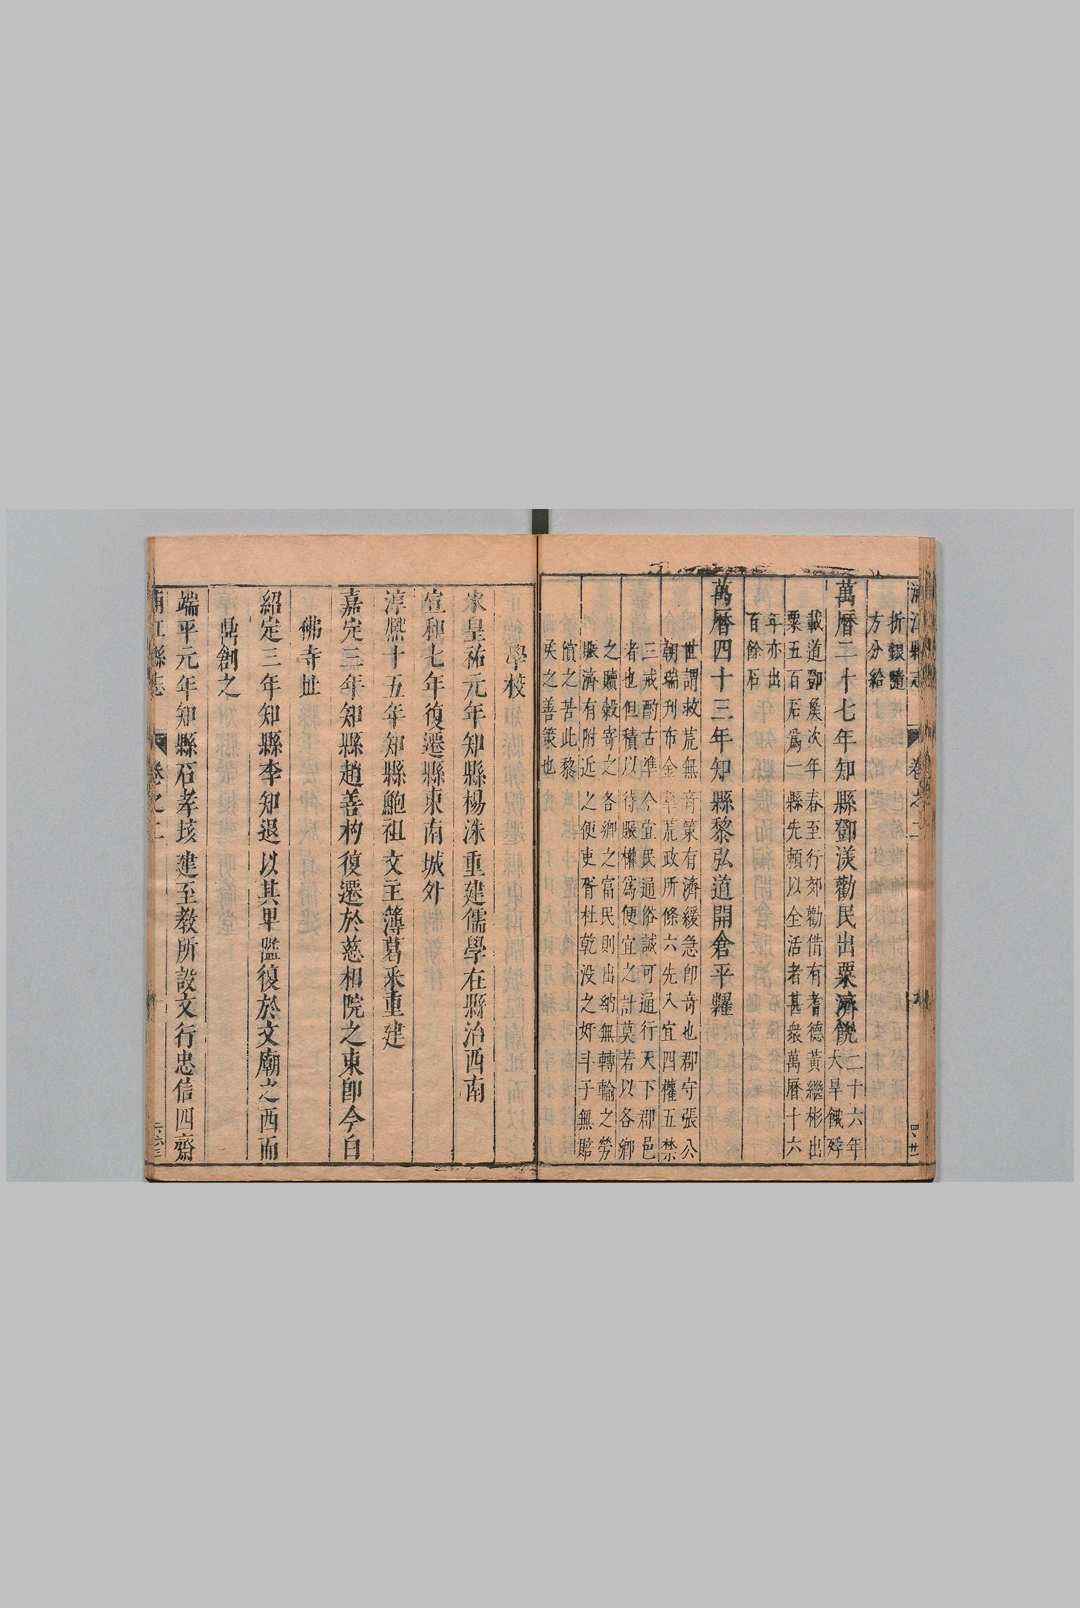 浦江縣志 卷之二
折銀隨
方分給
萬曆三十七年知縣鄧渼勸民出粟濟饑二十六年
大旱餓殍
載道鄧矦次年春至行郊勸借有耆德黃繼彬出
粟五百石爲一縣先頼以全活者甚衆萬曆十六
年亦出
百餘石
萬曆四十三年知縣黎弘道開倉平糶
世謂救荒無竒策有濟緩急卽竒也郡守張公
朝瑞刊布金華荒政所條六先入宜四權五禁
三戒酌古準今宜民通俗誠可通行天下郡邑
者也但積以待賑權爲便宜之計莫若以各鄉
之贖穀寄之各鄉之富民則出納無轉輸之勞
賑濟有附近之便吏胥杜乾没之奸斗子無賠
償之苦此黎
矦之善策也
學校
宋皇祐元年知縣楊洙重建儒學在縣治西南
宣和七年復遷縣東南城外
淳熈十五年知縣鮑祖文主簿葛釆重建
嘉定三年知縣趙善杓復遷於慈相院之東卽今白
佛寺址
紹定三年知縣李知退以其卑隘復於文廟之西而
鼎創之
端平元年知縣石孝孩建至敎所設文行忠信四齋
浦江縣志 卷之二